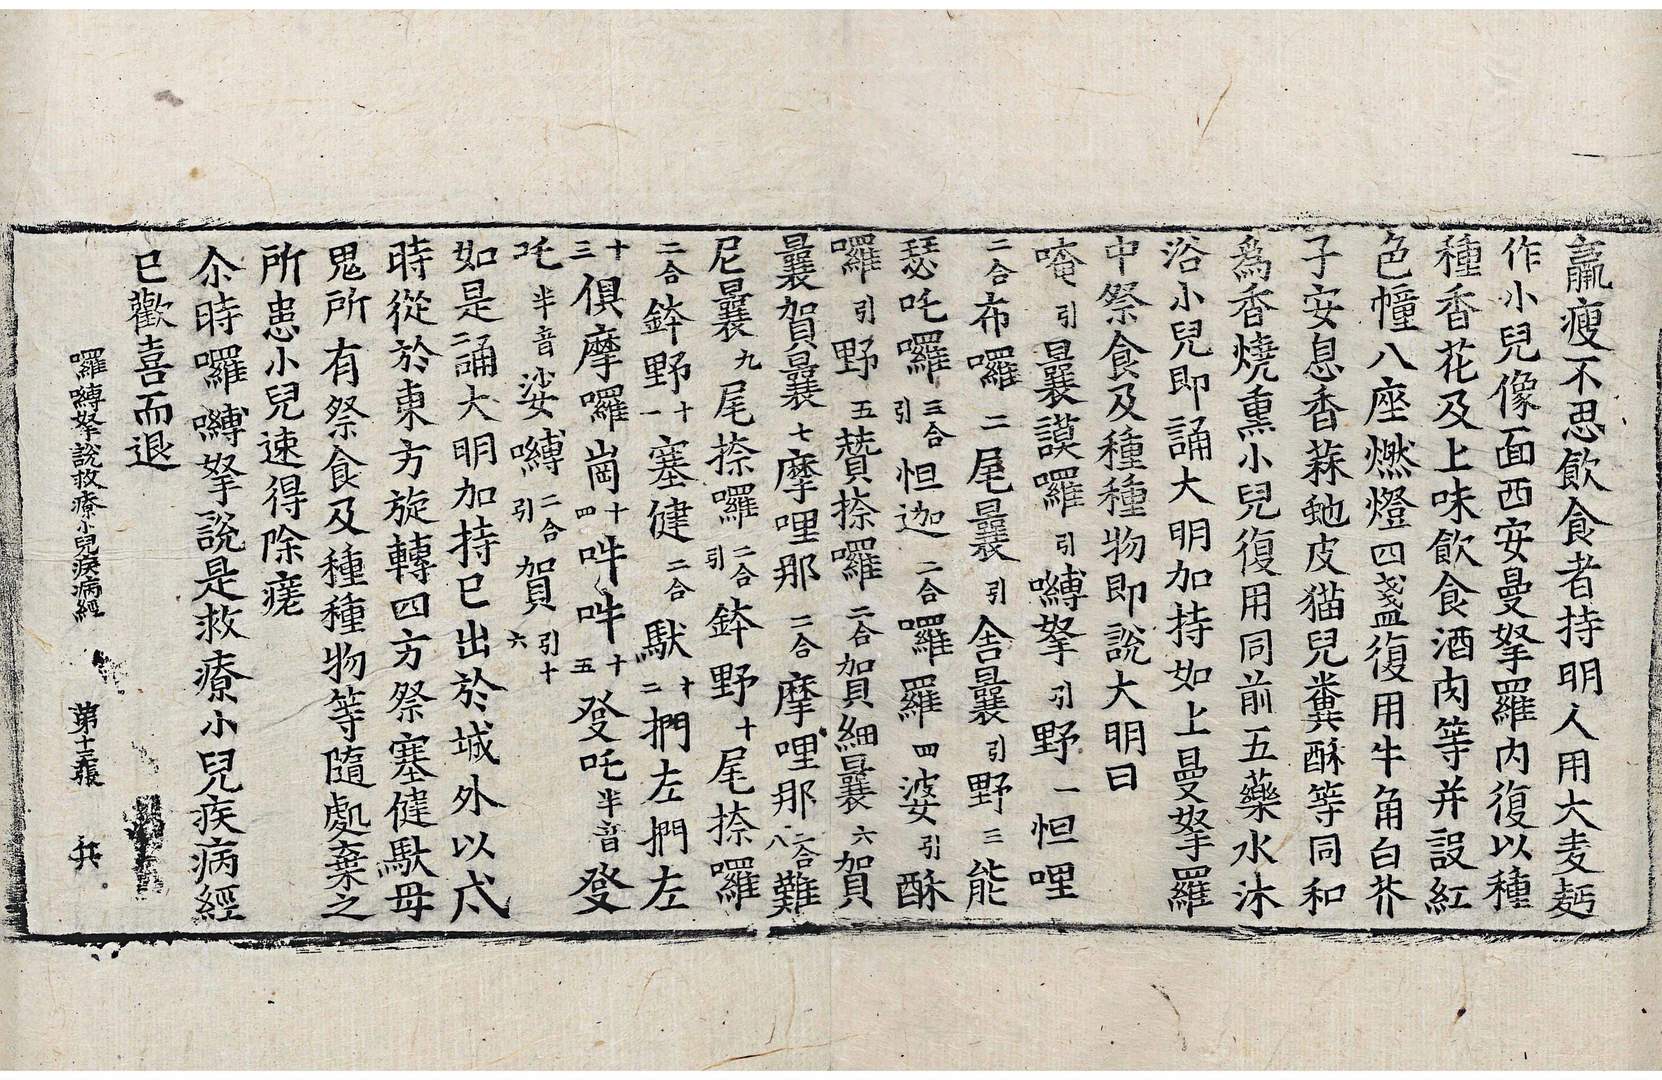 羸瘦不思飲食者持明人用大麦麪
作小兒像面西安曼拏羅内復以種
種香花及上味飲食酒肉等并設紅
色幢八座燃燈四盞復用牛角白芥
子安息香蒜虵皮猫兒糞酥等同和
為香燒熏小兒復用同前五藥水沐
浴小兒即誦大明加持如上曼拏羅
中祭食及種種物即說大明曰
唵引曩謨囉引嚩拏引野一怛哩
二合布囉二尾曩引舍曩引野三能
瑟吒囉三合引怛迦二合囉羅四婆引酥
囉引野五贊捺囉二合賀細曩六賀
曩賀曩七摩哩那二合摩哩那二合八難
尼曩九尾捺囉二合引鉢野十尾捺囉
二合鉢野十一塞健二合馱十二捫左捫左
十三俱摩囉崗十四吽吽十五發吒半音發
吒半音娑嚩二合引賀引十六
如是二誦大明加持已出於城外以戌
時從於東方旋轉四方祭塞健馱母
鬼所有祭食及種種物等隨處棄之
所患小兒速得除瘥
尒時囉嚩拏說是救療小兒疾病經
已歡喜而退
囉嚩拏說救療小兒疾病經 第十三張 兵